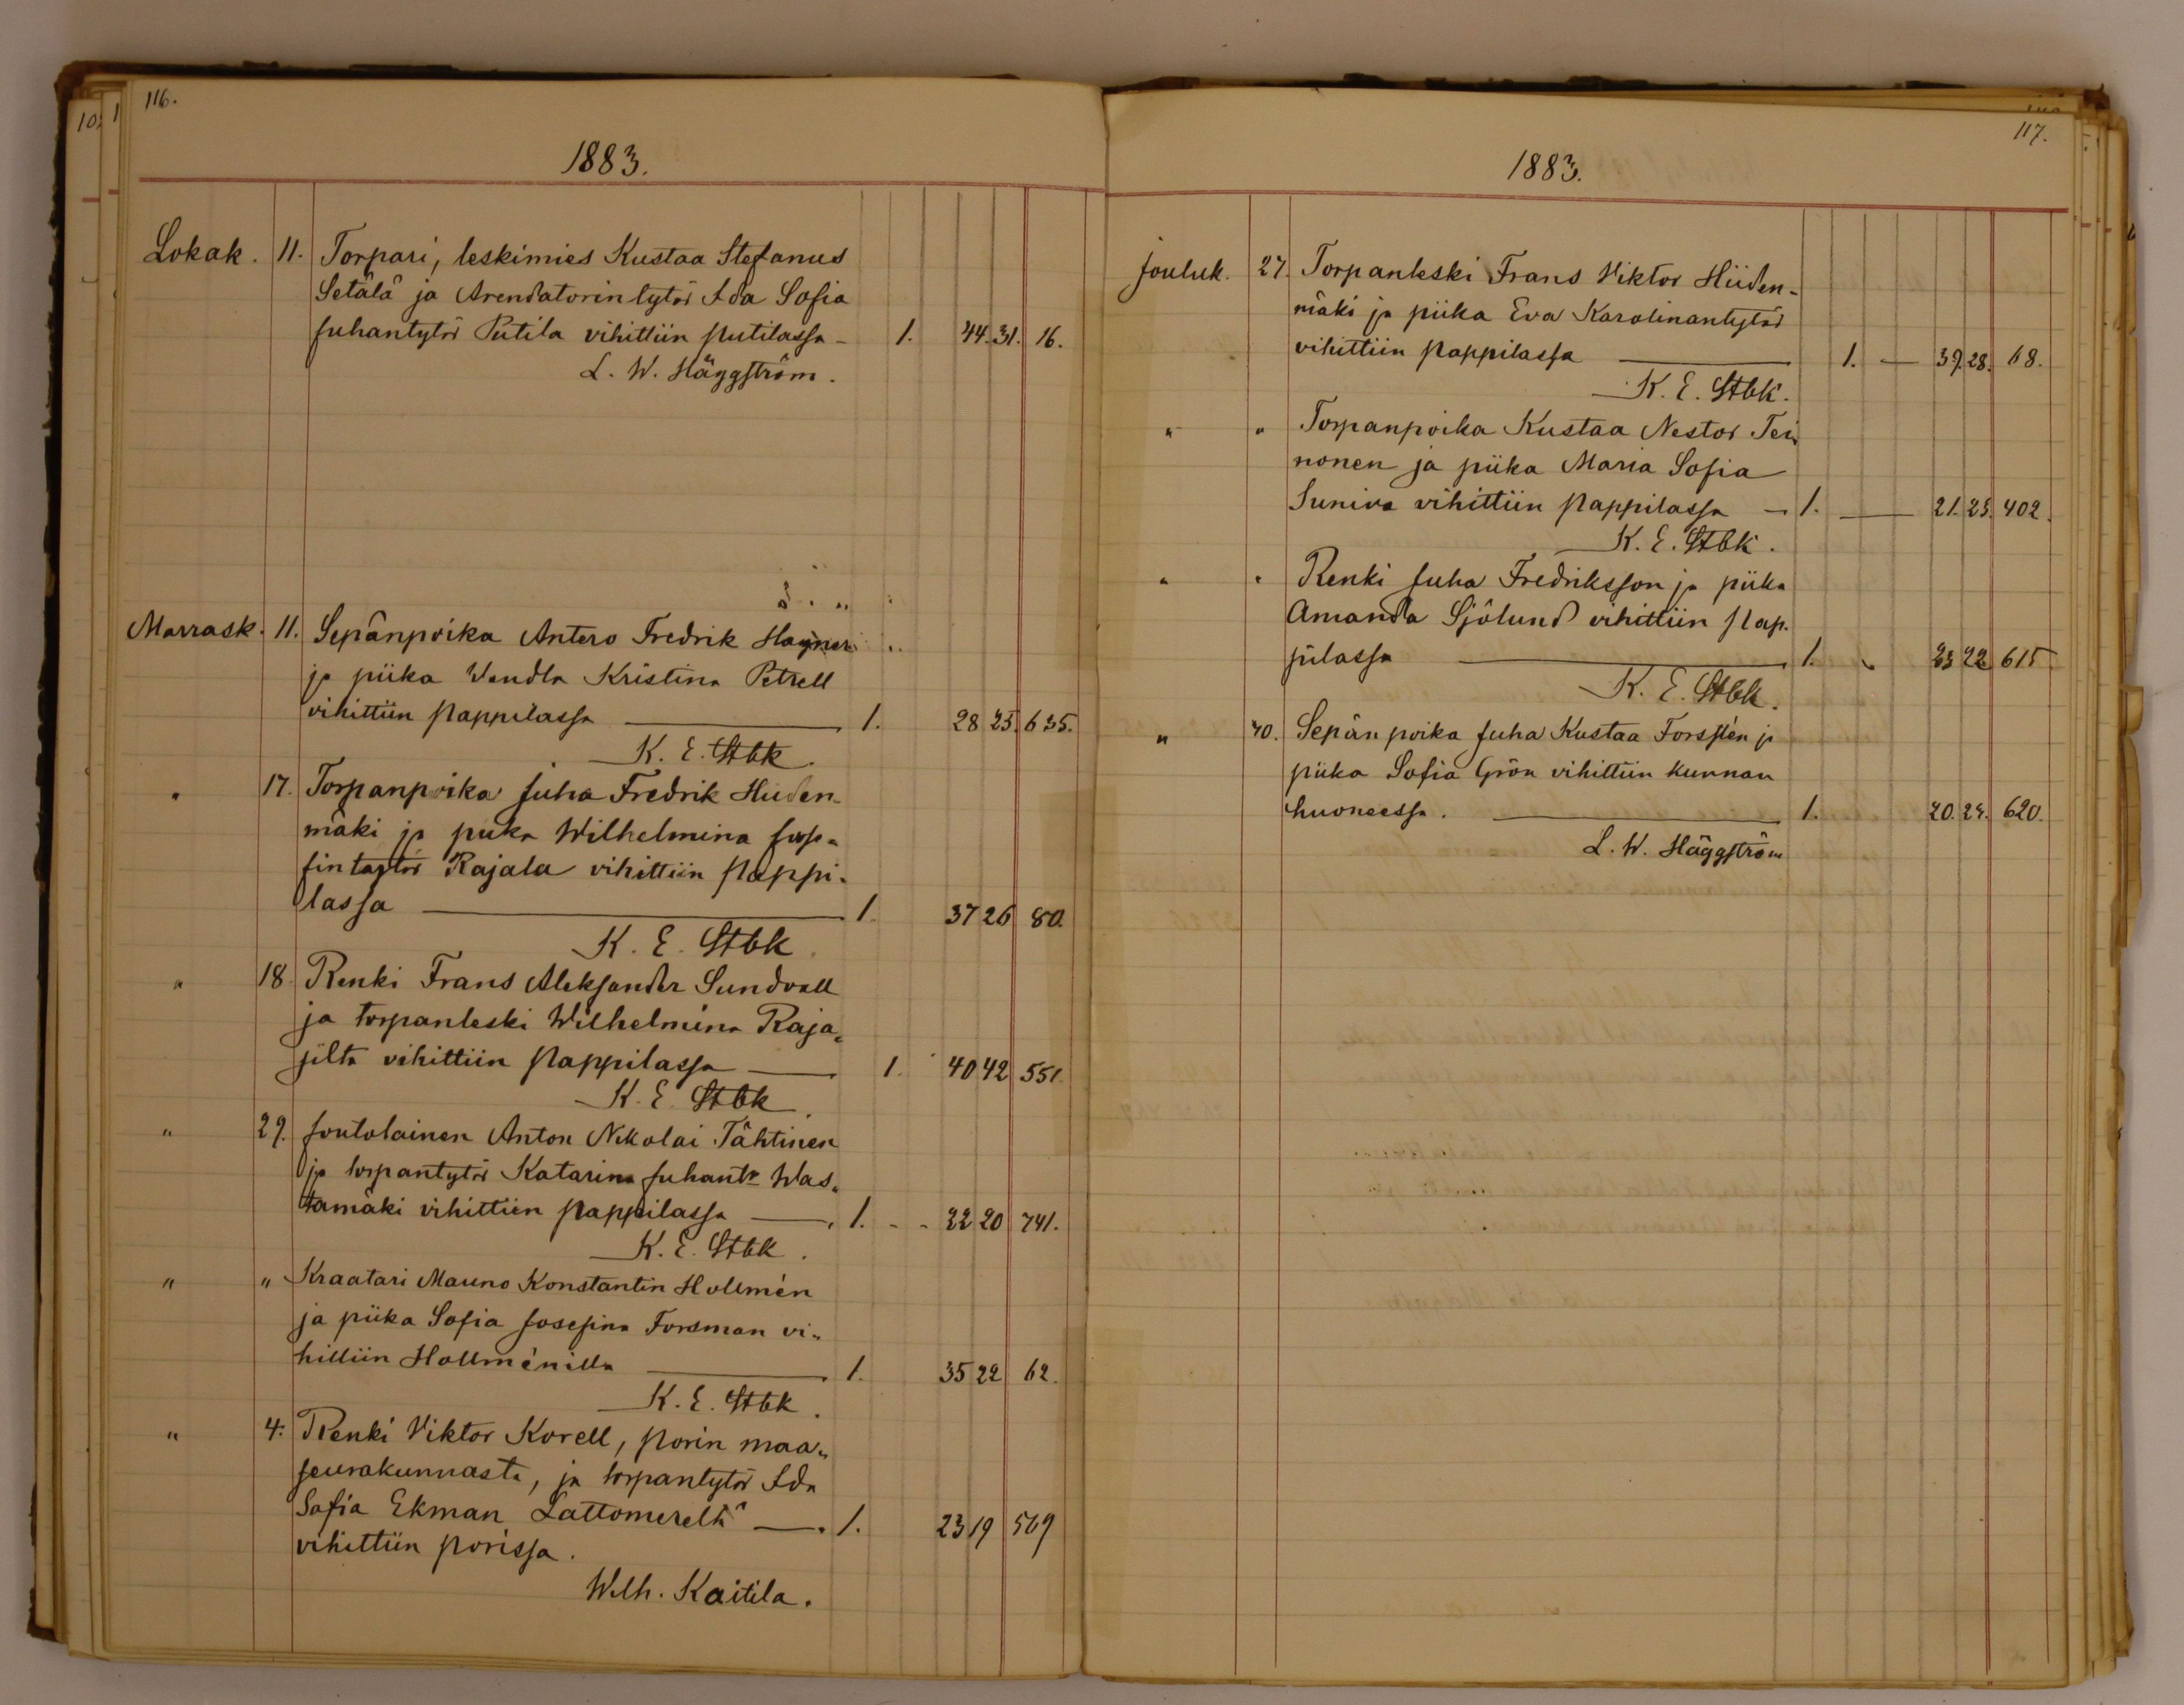 116.
1883.
Lokak. 11. Torpari, leskimies Kustaa Stefanus
Setälä ja Arendatorintytör Ida Sofia
Juhantytör Putila vihittiin Putilassa - 1. 44. 31. 16.
L. W. Häggström.
Marrask. 11. Sepänpoika Antero Fredrik
ja piika Wendla Kristina Petrell
vihittiin Pappilassa 1. 28 25. 635.
K. E. Stbk.
" 17. Torpanpoika Juha Fredrik Hiiden-
mäki ja piika Wilhelmina
Rajala vihittiin Pappi-
lassa 1. 37 26 80.
K. E. Stbk
" 18. Renki Frans Aleksander Sundvall
ja torpanleski Wilhelmina Raja-
vihittiin Pappilassa 1. 40 42 551.
K. E. Stbk.
" 29. Joutolainen Anton Nikolai Tähtinen
ja torpantytör Katarina Juhantr Was-
tamäki vihittiin Pappilassa 1. - - 22 20 741.
K. E. Stbk.
" " Kraatari Mauno Konstantin Hollmén
ja piika Sofia Josefina Forsman vi-
hittiin Hollménilla 1. 35 22 62.
K. E. Stbk.
" 4. Renki Viktor Korell, Porin maa-
seurakunnasta, ja torpantytör Ida
Sofia Ekman Lattomereltä 1. 23 19 569
vihittiin Porissa.
Wilh. Kaitila.
117.
1883.
Jouluk. 27. Torpanleski Frans Viktor Hiiden-
mäki ja piika Eva Karolinantytör
vihittiin Pappilassa 1. — 39. 28. 68.
K. E. Stbk.
" " Torpanpoika Kustaa Nestor Tei-
nonen ja piika Maria Sofia
Suniva vihittiin Pappilassa 1. — 21. 23. 402.
K. E. Stbk.
" " Renki Juha Fredriksson ja piika
Amanda Sjölund vihittiin Pap-
pilassa 1. 23 22 615
K. E. Stbk.
" 30. Sepän poika Juha Kustaa Forssten ja
piika Sofia Grön vihittiin kunnan
huoneessa. 1. 20. 24. 620.
L. W. Häggström